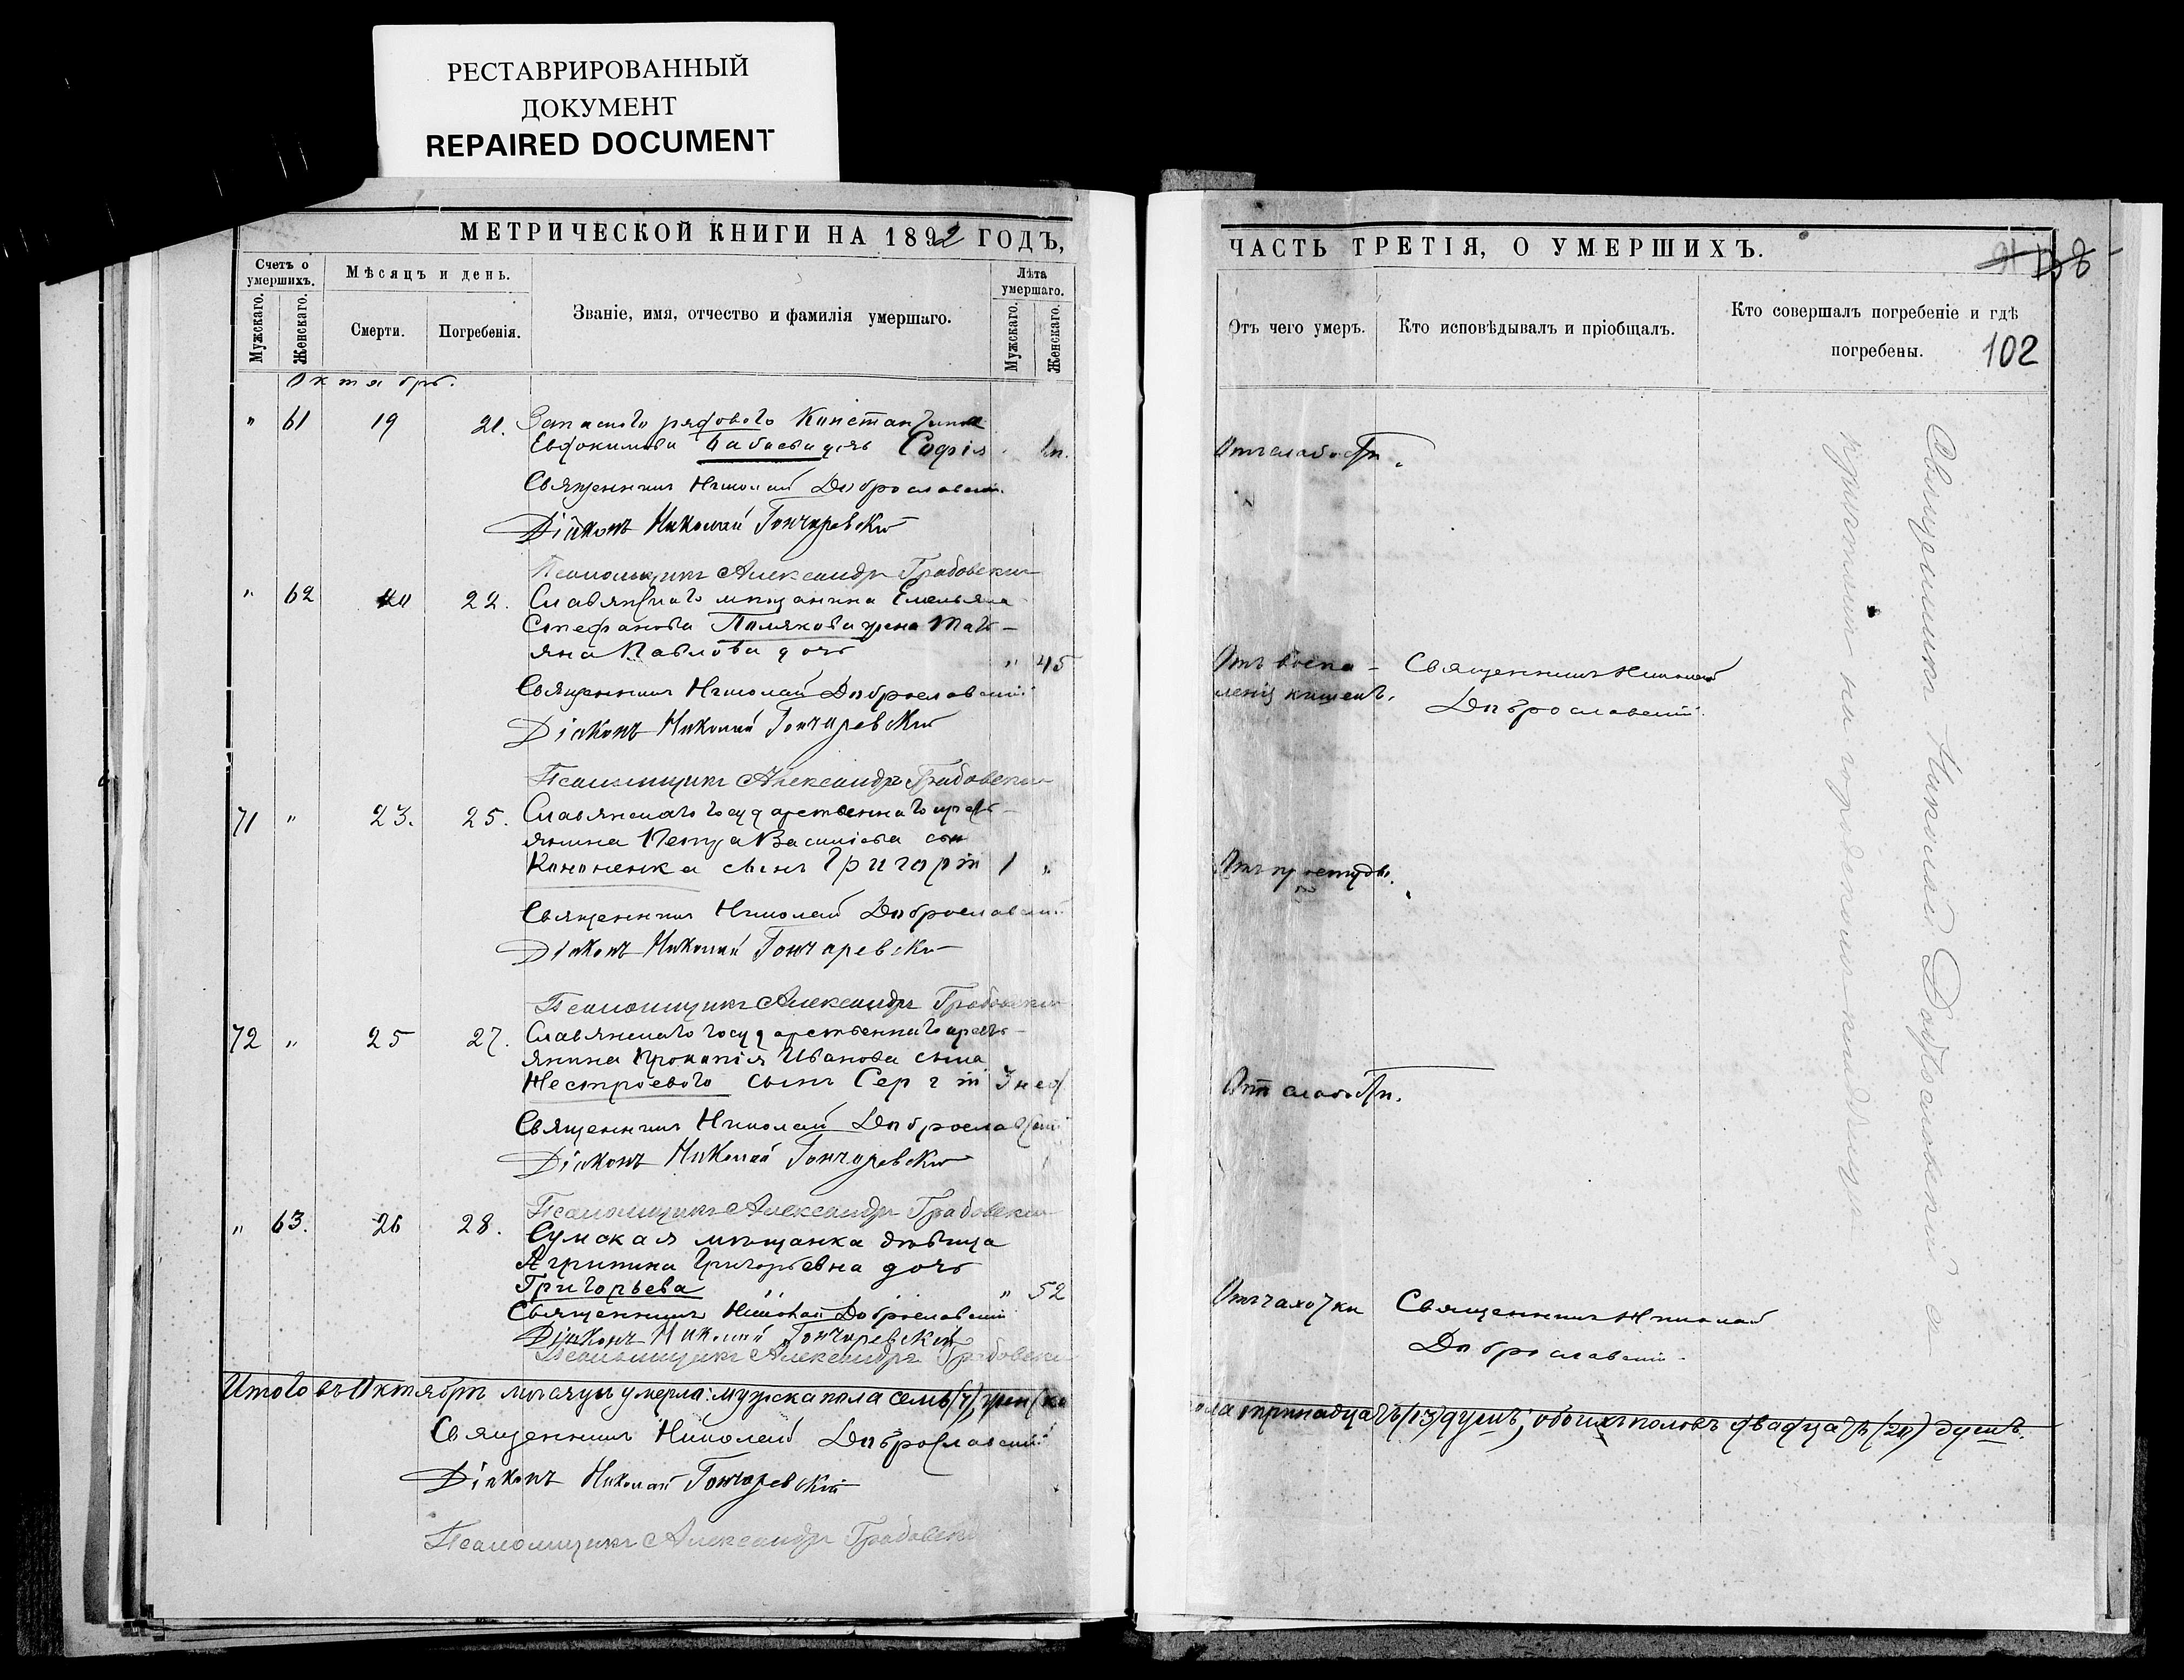 РЕСТАВРИРОВАННЫЙ
ДОКУМЕНТ
REPAIRED DOCUMENT
МЕТРИЧЕСКОЙ КНИГИ НА 1892 ГОДЪ,
Счетъ о умершихъ.
Мужскаго.
Женскаго.
Мѣсяцъ и день.
Смерти.
Погребенія.
Званіе, имя, отчество и фамилія умершаго.
Лѣта умершаго.
Мужскаго.
Женскаго.
Октябрь.
" 61 19 21. Запаснаго рядового Константина
Евдокимова Бабаева дочь Софія
Священникъ Николай Доброславскій
Діаконъ Николай Гончаревскій
Псаломщикъ Александръ Грабовскій
" 62 22. Славянскаго мѣщанина Емельяна
Стефанова Полякова жена Тать-
яна Павлова дочь " 45
Священникъ Николай Доброславскій
Діаконъ Николай Гончаревскій
Псаломщикъ Александръ Грабовскій
71 " 23. 25. Славянскаго государственнаго кресть-
янина Петра Василіева сына
Кононенка сынъ Григорій 1 "
Священникъ Николай Доброславскій
Діаконъ Николай Гончаревскій
Псаломщикъ Александръ Грабовскій
72 " 25 27. Славянскаго государственнаго кресть-
янина Прокопія Иванова сына
Нестроевого сынъ Сергій 3 нед.
Священникъ Николай Доброславскій
Діаконъ Николай Гончаревскій
Псаломщикъ Александръ Грабовскій
" 63. 26 28. Сумская мѣщанка дѣвица
Агрипина Григорьевна дочь
Григорьева " 52
Священникъ Николай Доброславскій
Діаконъ Николай Гончаревскій
Псаломщикъ Александръ Грабовскій
Итого въ Октябрѣ мѣсяцѣ умерло: мужска пола семь (7), женска
Священникъ Николай Доброславскій
Діаконъ Николай Гончаревскій
Псаломщикъ Александръ Грабовскій
ЧАСТЬ ТРЕТІЯ, О УМЕРШИХЪ.
Отъ чего умеръ.
Кто исповѣдывалъ и пріобщалъ.
Кто совершалъ погребеніе и гдѣ
погребены.
102
Отъ слабости.
Отъ воспа-
ленія кишекъ.
Священникъ Николай
Доброславскій.
Отъ простуды.
Отъ слабости.
Отъ чахотки
Священникъ Николай
Доброславскій.
пола тринадцать (13) душъ; обоихъ половъ двадцать (20) душъ.
Священникъ Николай Доброславскій
на кладбищѣ